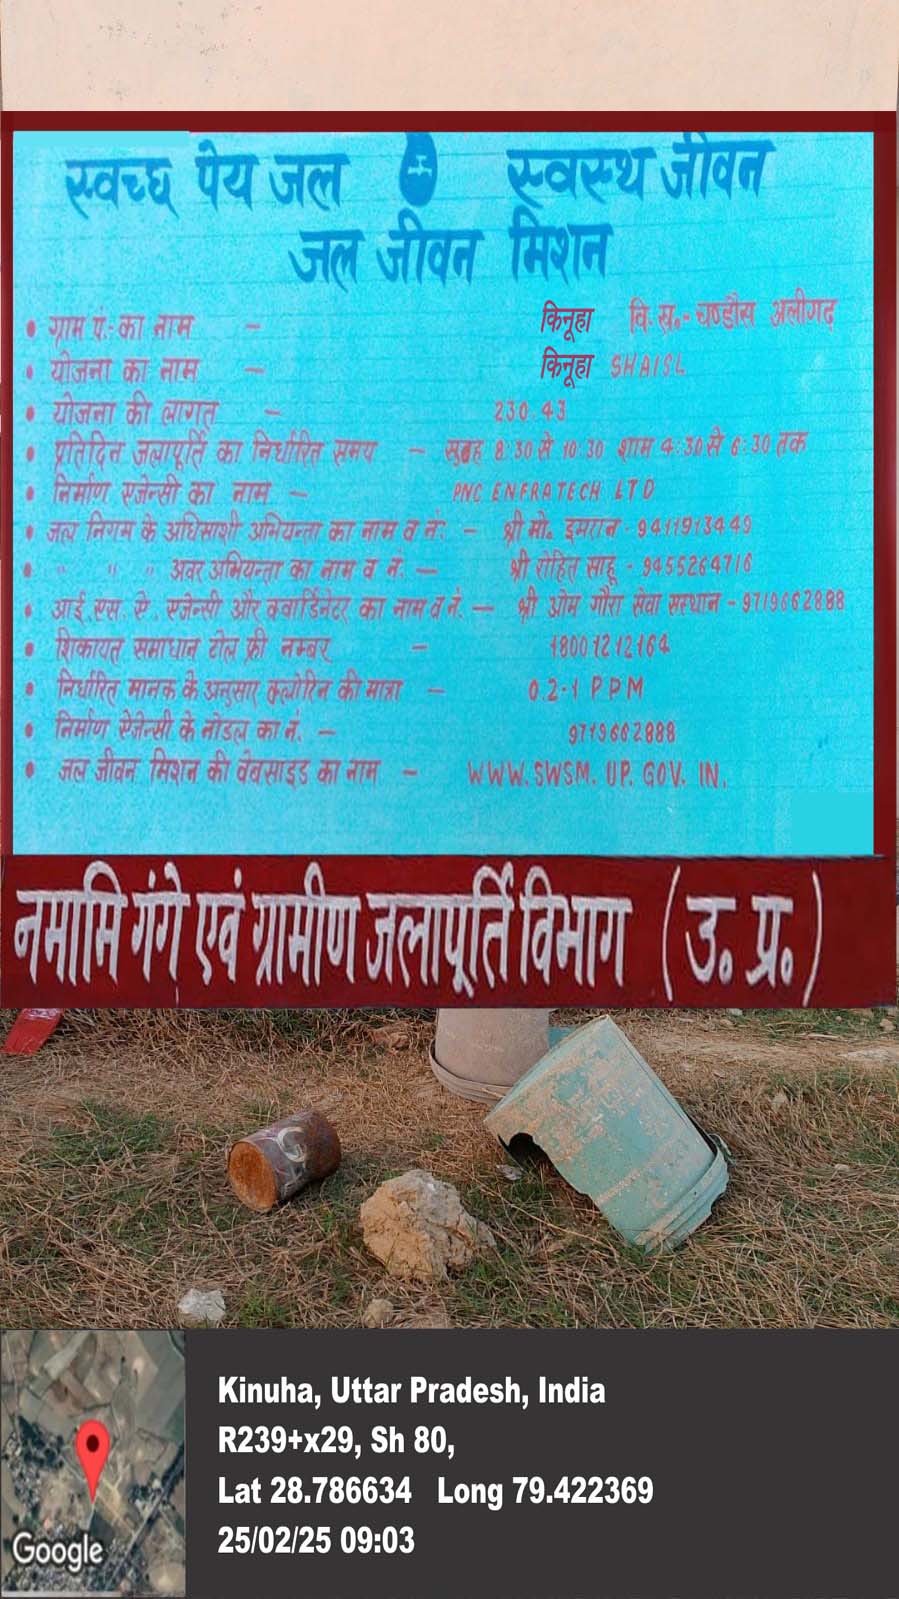 स्वच्छ पेय जल स्वस्थ जीवन
जल जीवन मिशन
• ग्राम पं.-का नाम - किनूहा वि. ख.- चण्डौस अलीगढ़
• योजना का नाम - किनूहा SHAISL
• योजना की लागत - 230.43
• प्रतिदिन जलापूर्ति का निर्धारित समय - सुबह 8:30 से 10:30 शाम 4:30 से 6:30 तक
• निर्माण एजेन्सी का नाम - PNC ENFRATECH LTD
• जल निगम के अधिसाशी अभियन्ता का नाम व नं. - श्री मो. इमरान - 9411913449
• " " " अवर अभियन्ता का नाम व नं. - श्री रोहित साहू - 9455264716
• आई. एस. ऐ. एजेन्सी और क्वार्डिनेटर का नाम व नं. - श्री ओम गौरा सेवा सस्थान - 9719662888
• शिकायत समाधान टोल फ्री नम्बर - 18001212164
• निर्धारित मानक के अनुसार क्लोरिन की मात्रा - 0.2-1 PPM
• निर्माण ऐजेन्सी के नोडल का नं. - 9719662888
• जल जीवन मिशन की वेबसाइड का नाम - WWW.SWSM.UP.GOV.IN.
नमामि गंगे एवं ग्रामीण जलापूर्ति विभाग (उ. प्र.)
Kinuha, Uttar Pradesh, India
R239+x29, Sh 80,
Lat 28.786634 Long 79.422369
25/02/25 09:03
Google